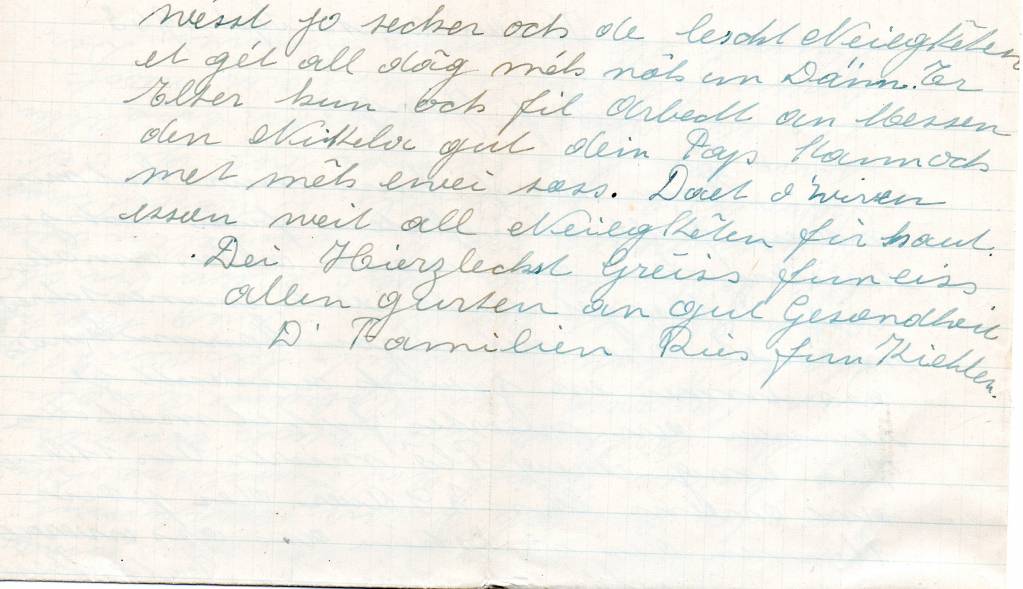 wësst jo secker och de lescht Neiegkêten
et gét all dâg mëh nôh un Dänn. Er
Elter hun och fil Arbecht an Messen
den Nikela gut dein Pap kann och
met mëh ewei soss. Daet d'wiren
essen weit all Neiegkêten fir haut.
Dei Hierzlechst Greiss fun eiss
allen gursten an gut Gesondheit
D'Familien Ries fun Kiehlen.